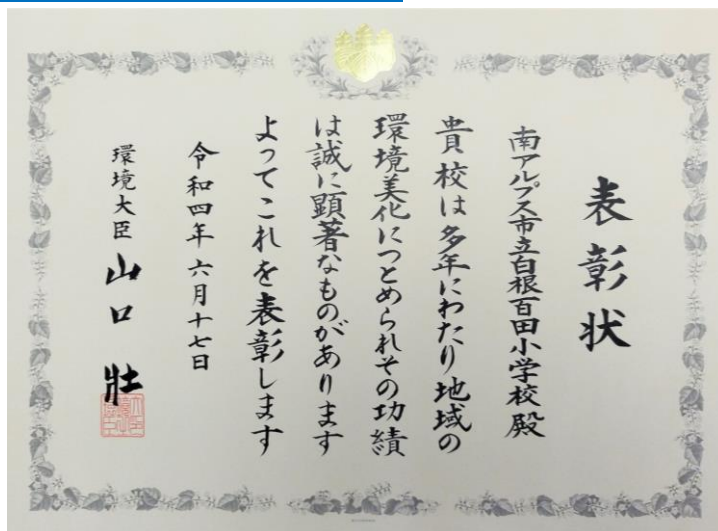 表彰状
南アルプス市立白根百田小学校殿
貴校は多年にわたり地域の
環境美化につとめられその功績
は誠に顕著なものがあります
よってこれを表彰します
令和四年六月十七日
環境大臣 山口 壯